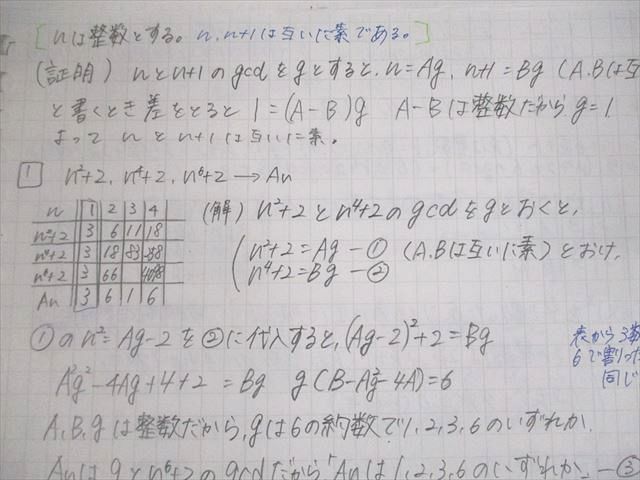 [nは整数とする。n, n+1は互いに素である。]
(証明) nとn+1のgcdをgとすると, n=Ag, n+1=Bg (A.Bは互
と書くとき差をとると 1=(A-B)g A-Bは整数だからg=1.
よって nとn+1は互いに素。
1 n²+2, n⁴+2, n⁶+2 → An
n 1 2 3 4
n²+2 3 6 11 18
n⁴+2 3 18 83
n⁶+2 3 66
An 3 6 1 6
(解) n²+2とn⁴+2のgcdをgとおくと,
n²+2=Ag -① (A.Bは互いに素)とおけ
n⁴+2=Bg -②
①のn²=Ag-2を②に代入すると, (Ag-2)²+2=Bg
A²g²-4Ag+4+2=Bg g(B-A²g-4A)=6
A, B, gは整数だから, gは6の約数で1, 2, 3, 6のいずれか.
Anはgとn⁶+2のgcdだから「Anは1, 2, 3, 6のいずれか」-③
表から3数
6で割った
同じ